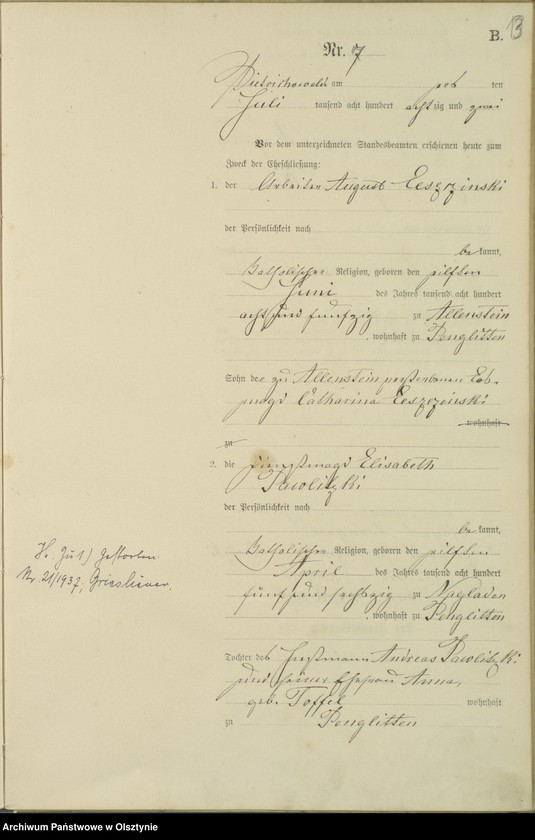 B. 13
Nr. 7
Dietrichswalde am ten
Juli tausend acht hundert achtzig und zwei
Vor dem unterzeichneten Standesbeamten erschienen heute zum
Zweck der Eheschließung:
1. der Arbeiter August Leszezinski
der Persönlichkeit nach
bekannt,
Katholischer Religion, geboren den elften
Juni des Jahres tausend acht hundert
acht und fünfzig zu Allenstein
, wohnhaft zu Penglitten
Sohn der zu Allenstein verstorbenen
Catharina Leszezinski
wohnhaft
zu
2. die Dienstmagd Elisabeth
Pawlitzki
der Persönlichkeit nach
bekannt,
Katholischer Religion, geboren den elften
April des Jahres tausend acht hundert
fünf und sechszig zu Nagladen
, wohnhaft zu Penglitten
Tochter des Instmann Andreas Pawlitzki
und seiner Ehefrau Anna,
geb. Toffel wohnhaft
zu Penglitten
H. zu 1) gestorben
Nr. 21/1937,
Archiwum Państwowe w Olsztynie